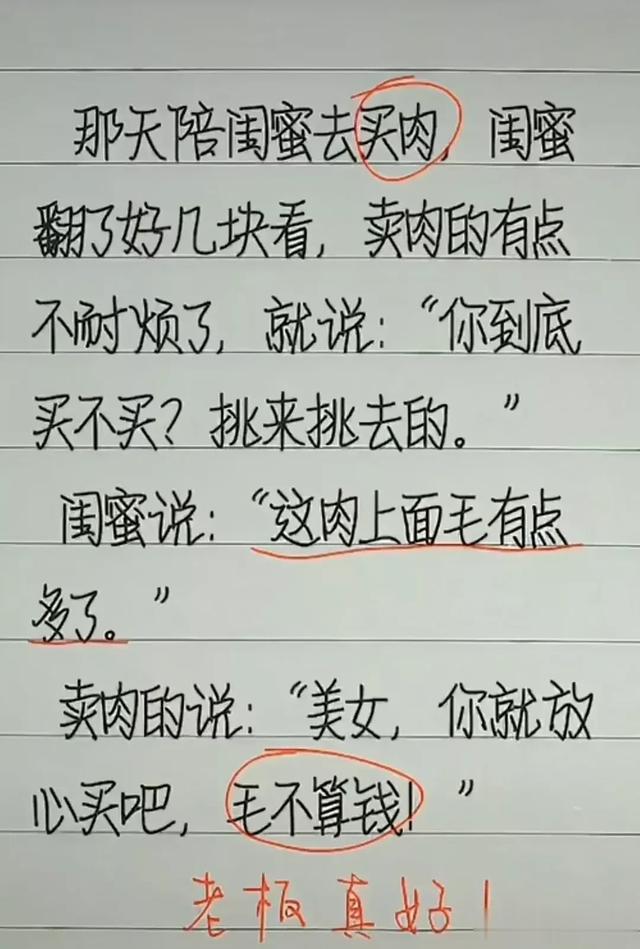 那天陪闺蜜去买肉，闺蜜
翻了好几块看，卖肉的有点
不耐烦了，就说：“你到底
买不买？挑来挑去的。”
闺蜜说：“这肉上面毛有点
多了。”
卖肉的说：“美女，你就放
心买吧，毛不算钱！”
老板真好！